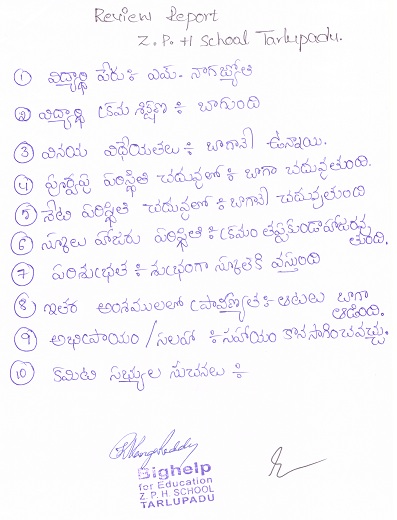 Review Report
Z.P.H School Tarlupadu.
① విద్యార్థి పేరు ః ఎమ్. నాగజ్యోతి
② విద్యార్థి క్రమ శిక్షణ ః బాగుంది
③ వినయ విధేయతలు ః బాగానే ఉన్నాయి.
④ పూర్వపు పరిస్థితి చదువులో ః బాగా చదువుతుంది.
⑤ నేటి పరిస్థితి చదువులో ః బాగానే చదువుతుంది
⑥ స్కూలు హాజరు పరిస్థితి ః క్రమం తప్పకుండా హాజరవు
తుంది.
⑦ పరిశుభ్రత ః శుభ్రంగా స్కూలుకి వస్తుంది
⑧ ఇతర అంశములలో ప్రావీణ్యత ః ఆటలు బాగా
ఆడింది.
⑨ అభిప్రాయం / సలహా ః సహాయం కొనసాగించవచ్చు.
⑩ కమిటి సభ్యుల సూచనలు ః
Bighelp
for Education
Z. P. H. SCHOOL
TARLUPADU